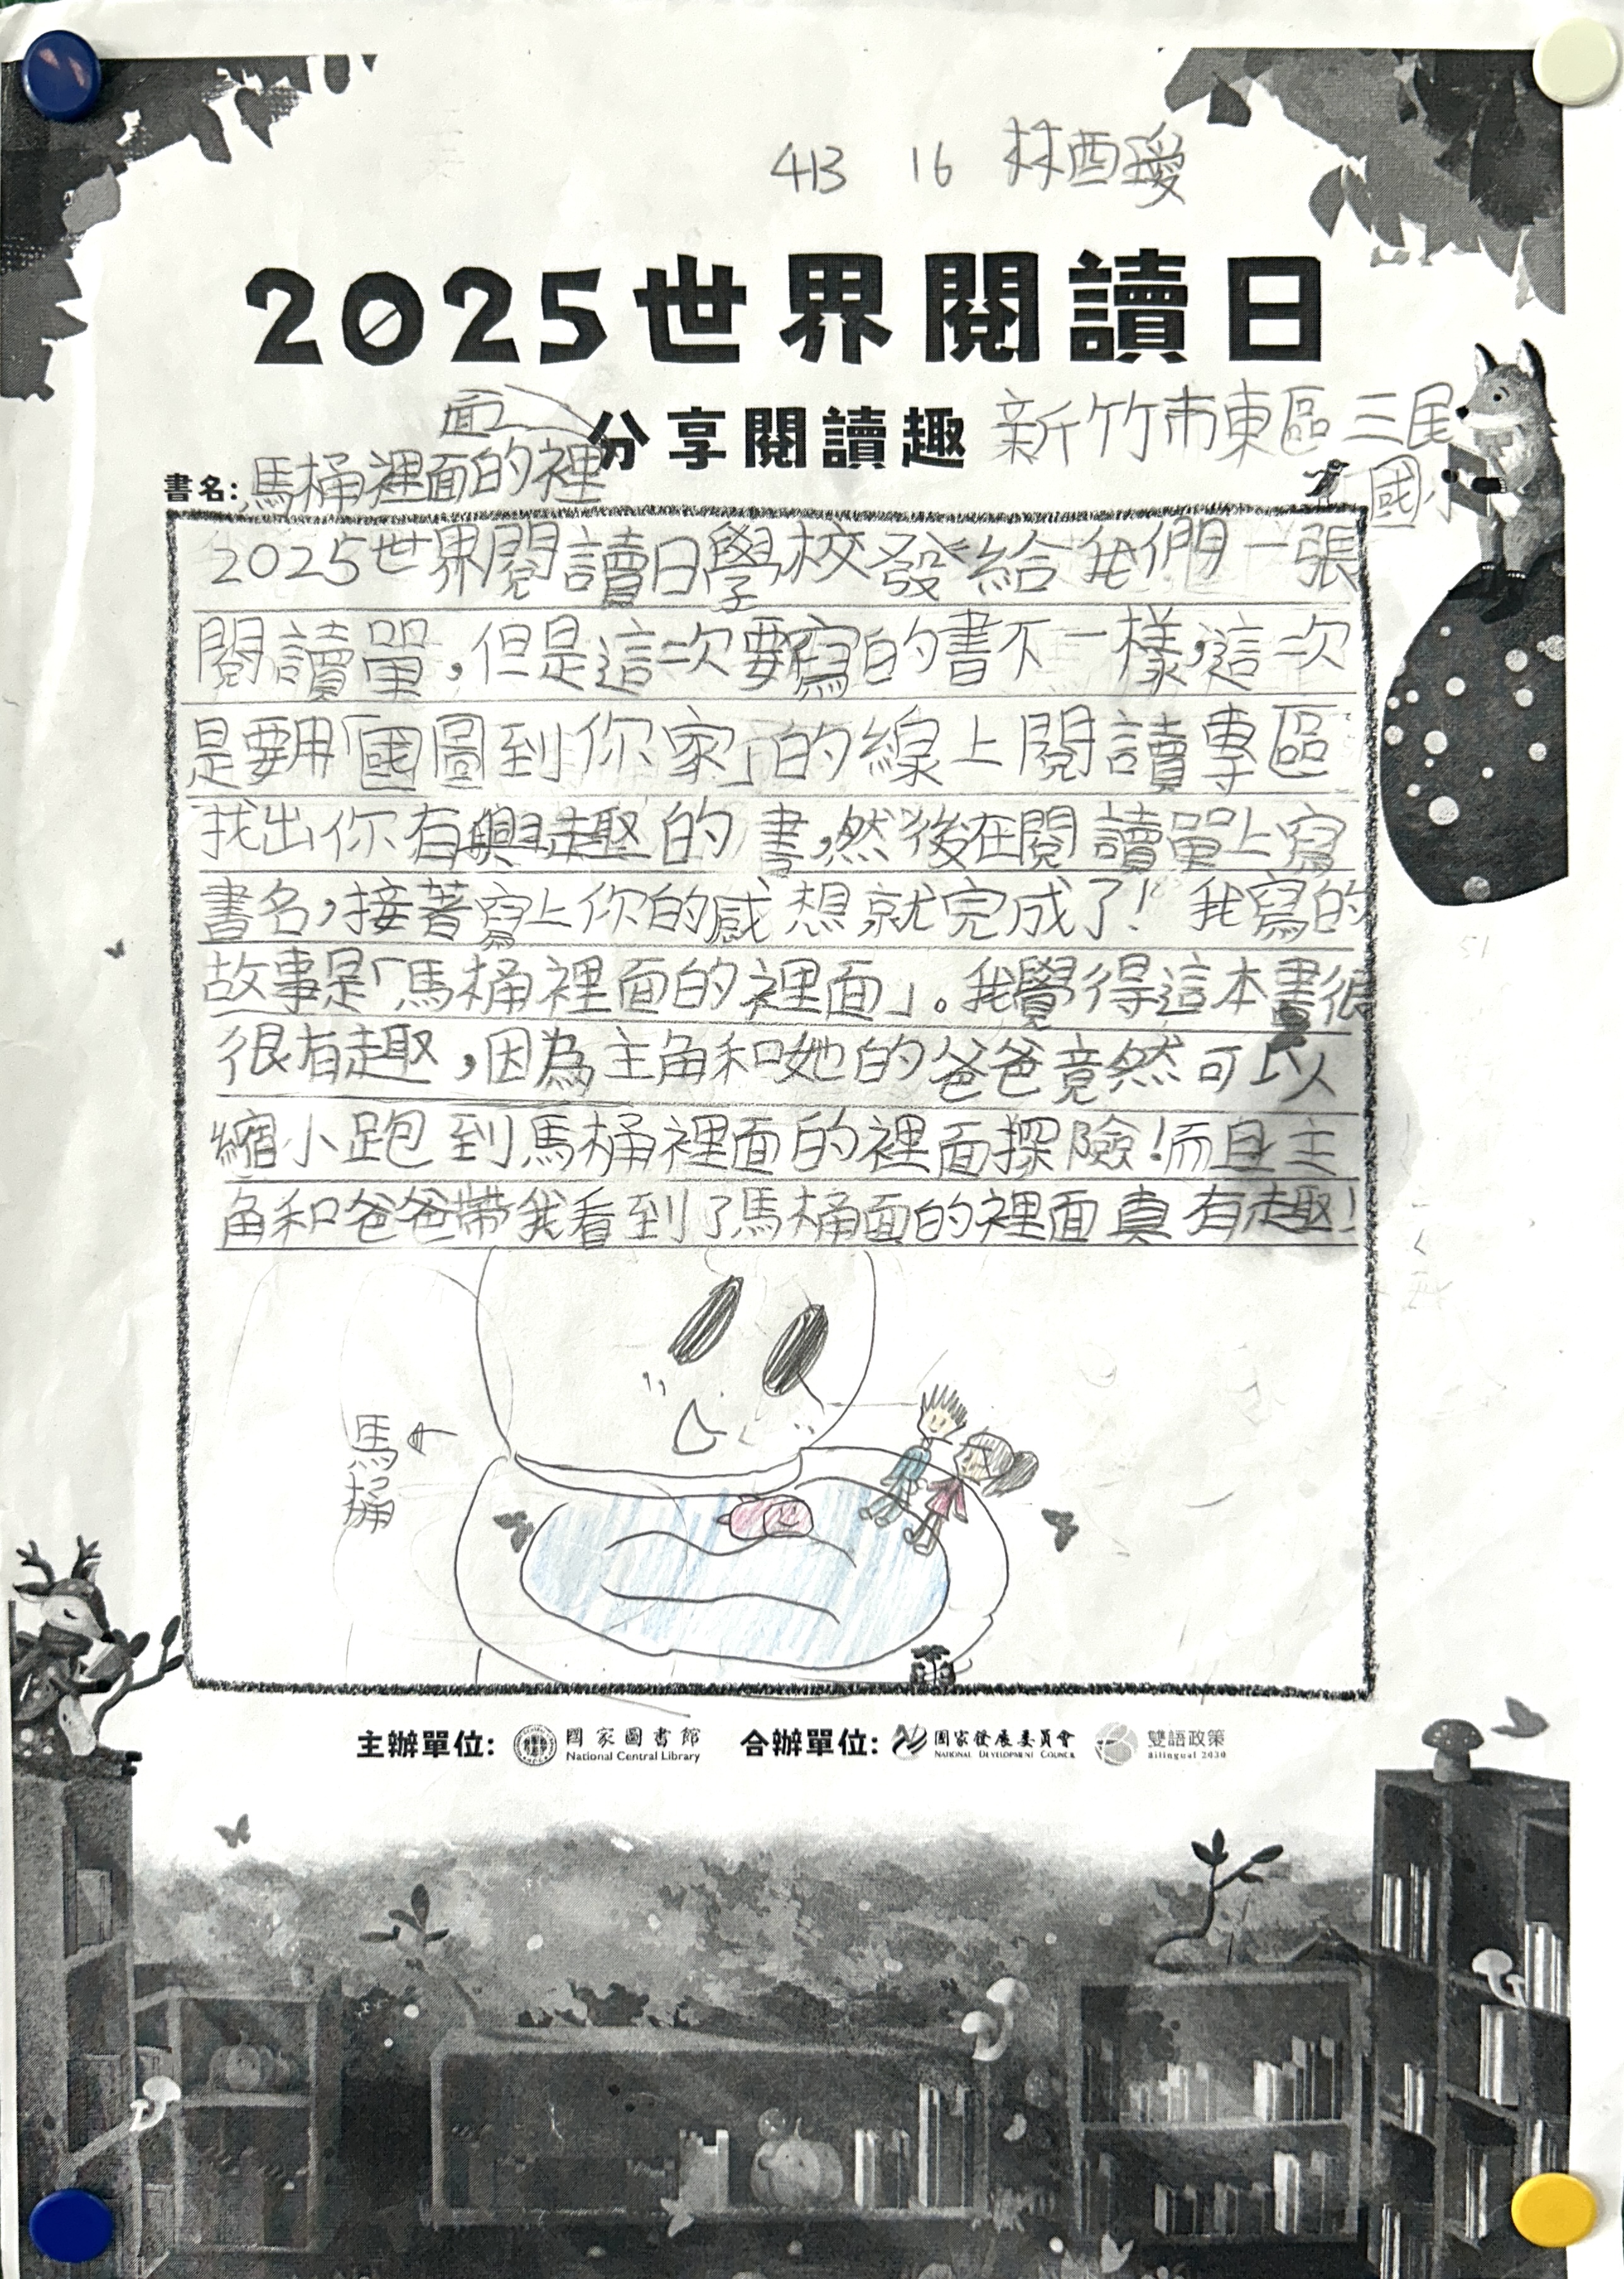 413 16 林酉璦
2025世界閱讀日
分享閱讀趣
新竹市東區三民
國小
書名:馬桶裡面的裡面
2025世界閱讀日學校發給我們一張
閱讀單,但是這次要寫的書不一樣,這次
是要用「國圖到你家」的線上閱讀專區
找出你有興趣的書,然後在閱讀單上寫
書名,接著寫上你的感想就完成了!我寫的
故事是「馬桶裡面的裡面」。我覺得這本書很
很有趣,因為主角和她的爸爸竟然可以
縮小跑到馬桶裡面的裡面探險!而且主
角和爸爸帶我看到了馬桶面的裡面真有趣!
馬桶
主辦單位: 國家圖書館 National Central Library 合辦單位: 國家發展委員會 NATIONAL DEVELOPMENT COUNCIL 雙語政策 Bilingual 2030